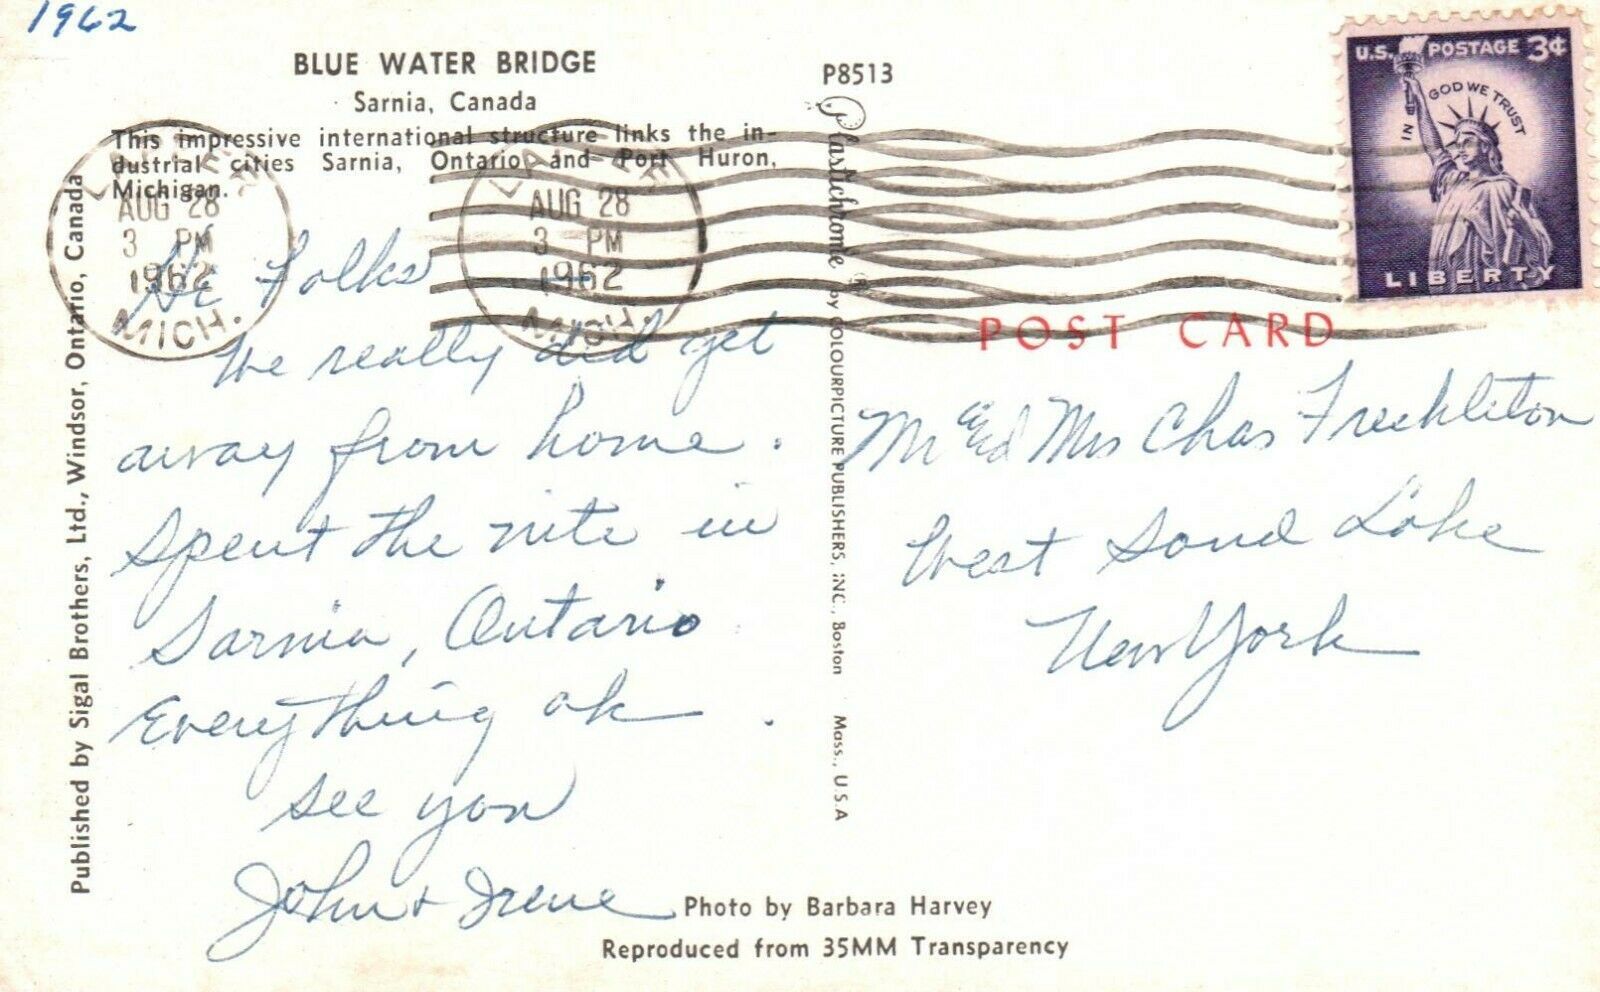 1962
BLUE WATER BRIDGE
Sarnia, Canada
This impressive international structure links the in-
dustrial cities Sarnia, Ontario and Port Huron,
Michigan.
LAPEER
AUG 28
3 PM
1962
MICH.
LAPEER
AUG 28
3 PM
1962
MICH.
Hi Folks
We really did get
away from home.
Spent the nite in
Sarnia, Ontario
Everything ok.
see you
John & Irene
Published by Sigal Brothers, Ltd., Windsor, Ontario, Canada
P8513
Plastichrome ® by COLOURPICTURE PUBLISHERS, INC., Boston Mass., U.S.A
U.S. POSTAGE 3¢
IN GOD WE TRUST
LIBERTY
POST CARD
Mr and Mrs Chas Freckleton
West Sand Lake
New York
Photo by Barbara Harvey
Reproduced from 35MM Transparency